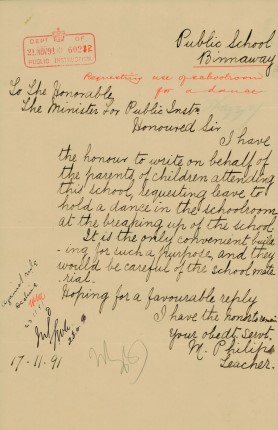 Public School
Binnaway
DEPT OF
23.NOV91 60212
PUBLIC INSTRUCTION
Requesting use of schoolroom
for a dance
To The Honorable
The Minister for Public Instn
Honoured Sir
I have
the honour to write on behalf of
the parents of children attending
this school, requesting leave to
hold a dance in the schoolroom
at the breaking up of the school.
It is the only convenient build
-ing for such a purpose, and they
would be careful of the school mate
rial.
Hoping for a favourable reply
I have the honor to remain
Your obedt. Servt.
M. Philips
Teacher.
17-11-91